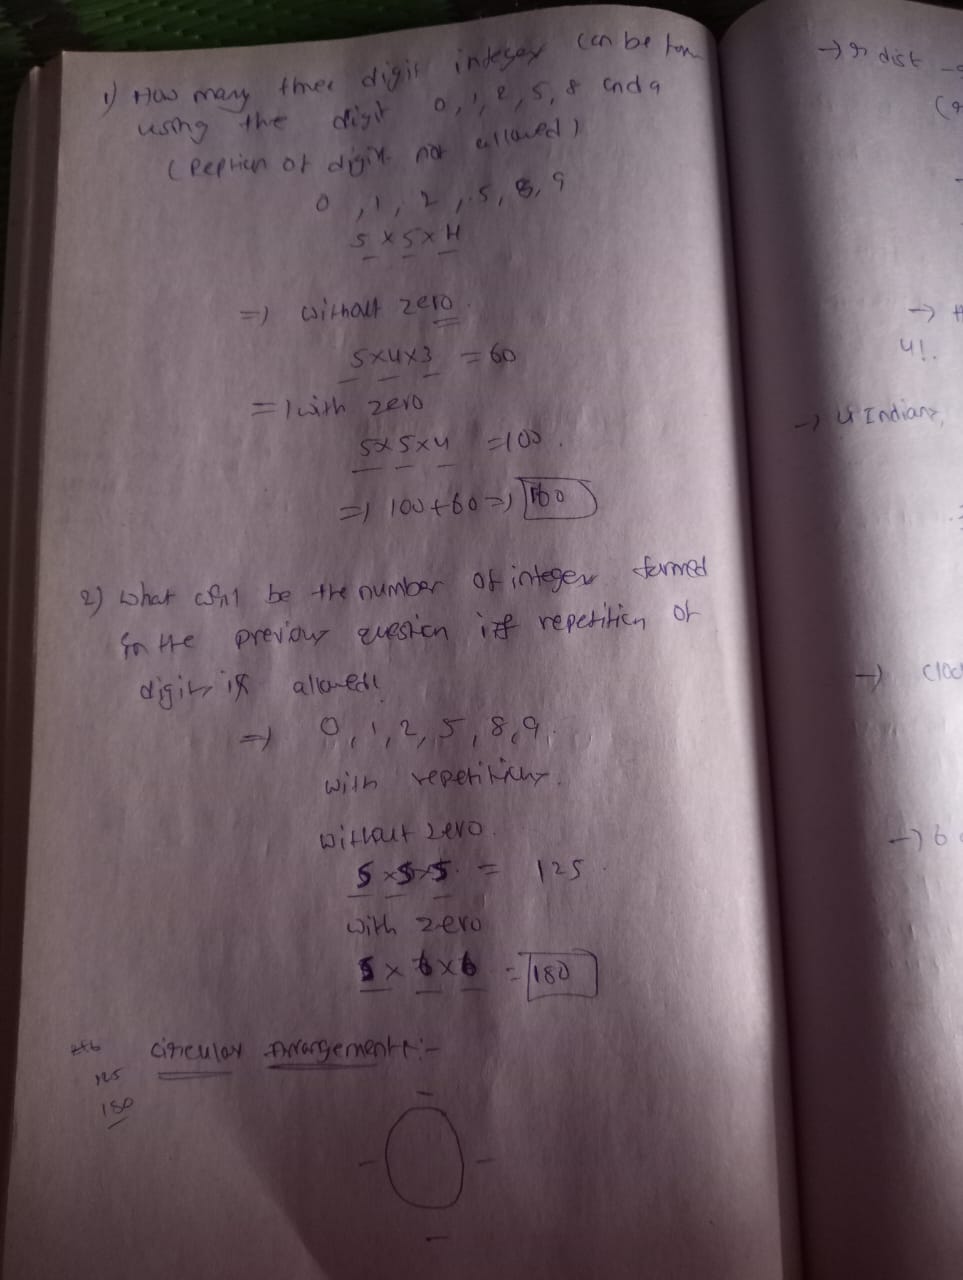 1) How many three digit integer can be
using the digit 0, 1, 2, 5, 8 and 9
( of digit not allowed)
0, 1, 2, 5, 8, 9
5 x 5 x 4
=) without zero.
5x4x3 = 60
=) with zero
5x5x4 =100.
=) 100+60 =) 160
2) what be the number of integer formed
in the previous question if repetition of
digit is allowed
=) 0, 1, 2, 5, 8, 9.
with repetition.
without zero.
5 x 5 x 5 = 125.
with zero
5 x 6 x 6 = 180
circular Arrangement :-
125
180
-) dist
4!.
-) 4 Indian,
-)
-) 6